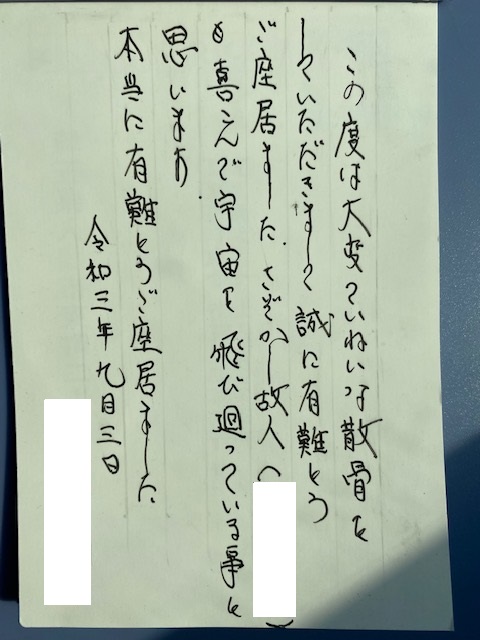 この度は大変ていねいな散骨を
していただきまして誠に有難とう
ご座居ました.さぞかし故人(
)
も喜んで宇宙を飛び廻っている事と
思います.
本当に有難とうご座居ました
令和三年九月三日